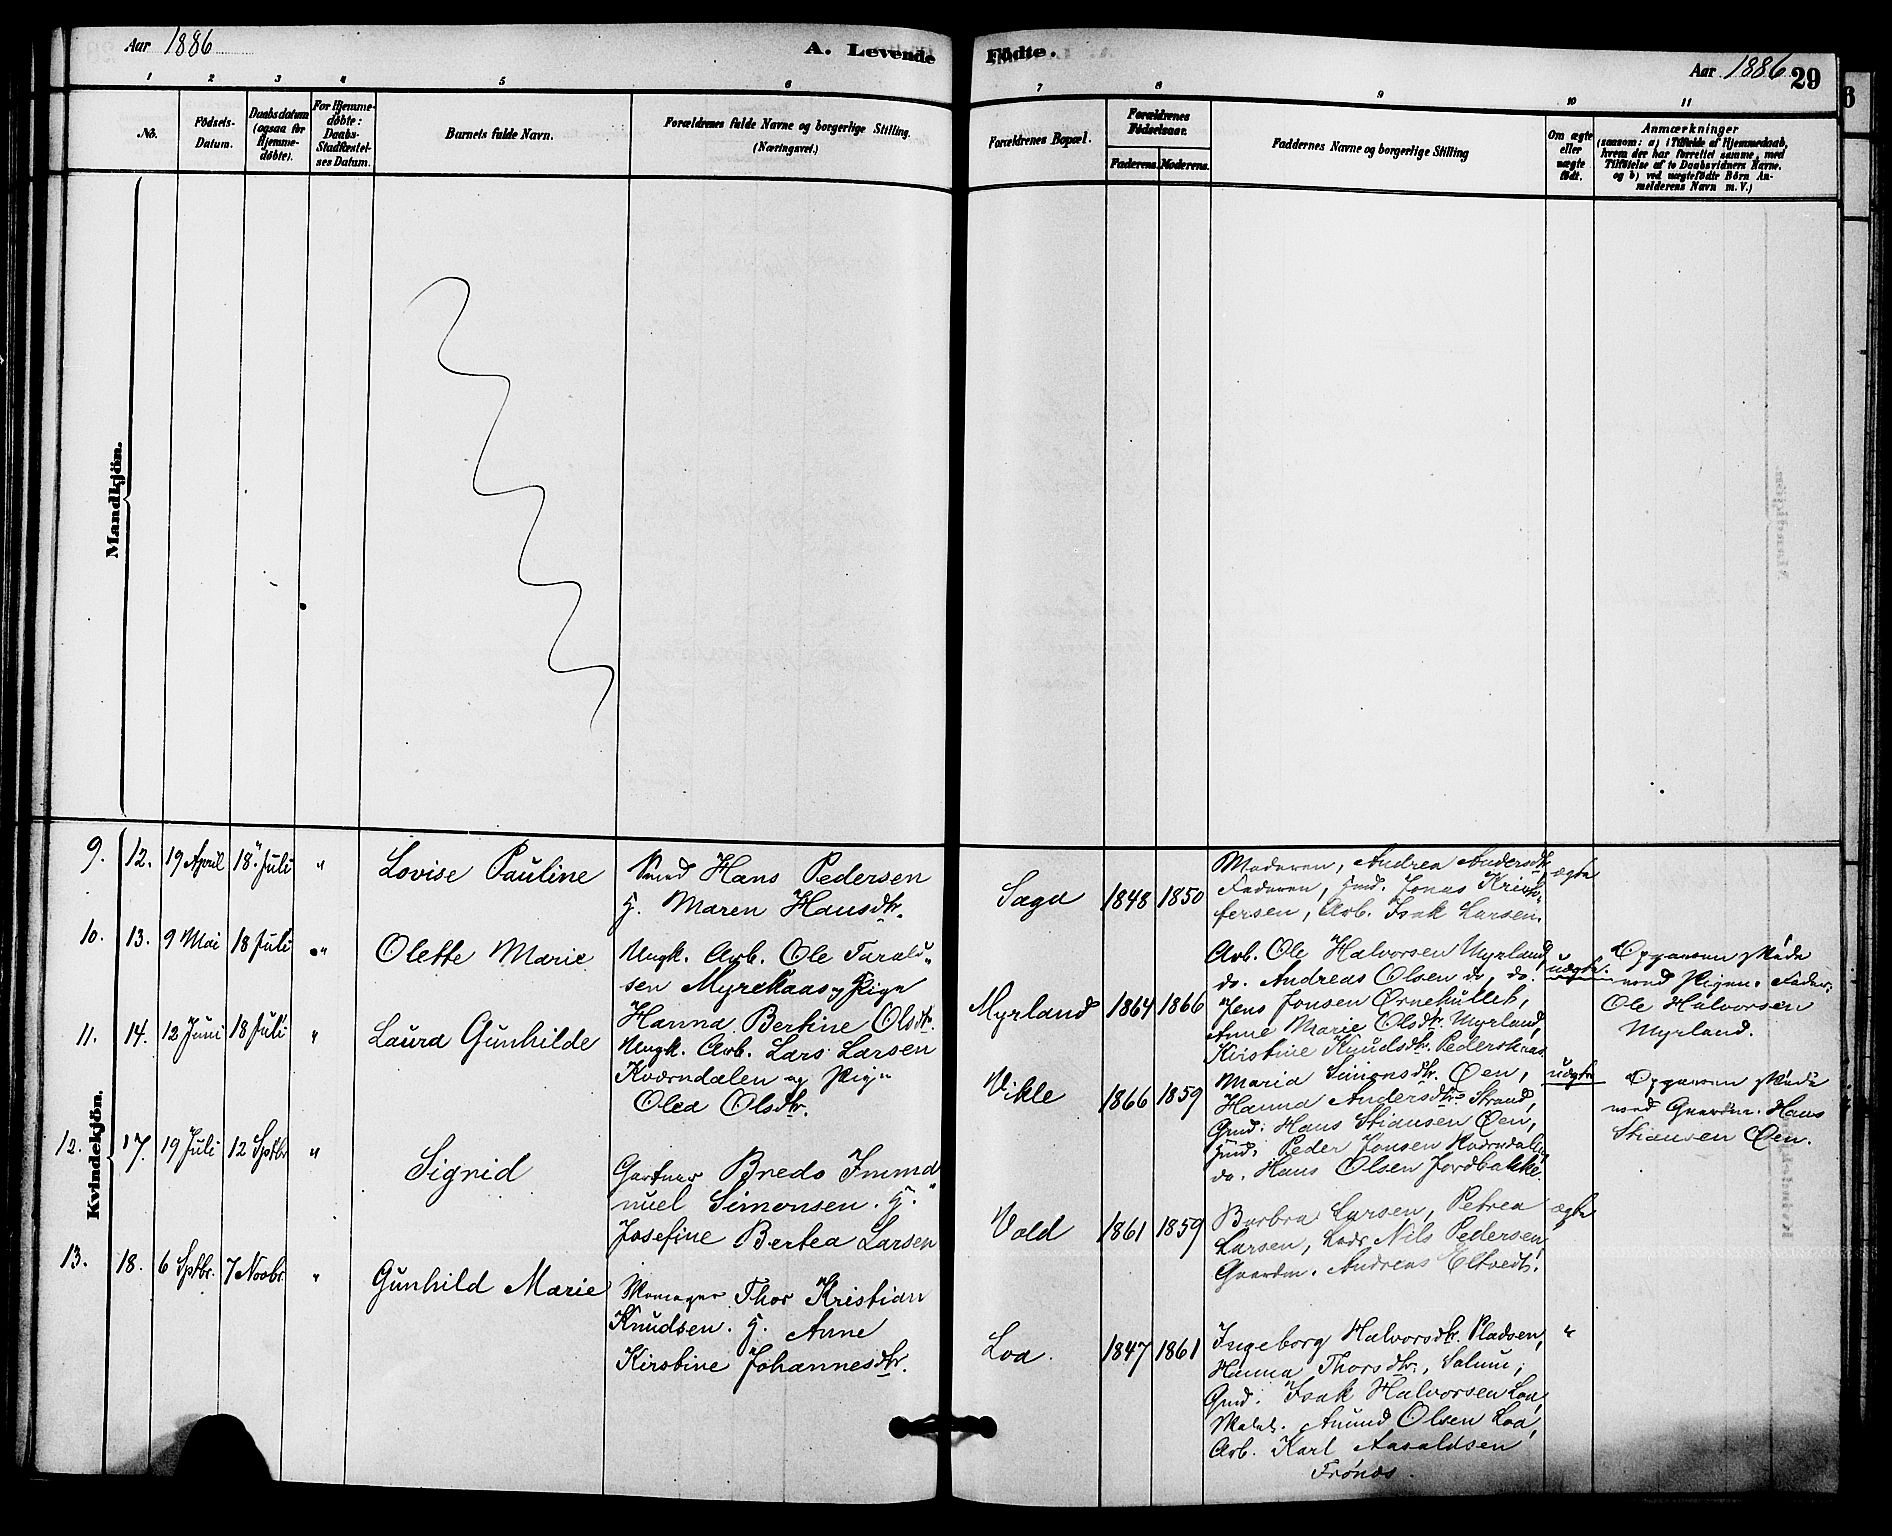 Aar 1886
A. Levende Födte.
Aar 1886 29
1 2 3 4 5 6 7 8 9 10 11
No.
Födsels-
Datum.
Daabsdatum
(ogsaa for
Hjemme-
döbte).
For Hjemme-
döbte:
Daabs-
Stadfæstel-
ses Datum.
Barnets fulde Navn.
Forældrenes fulde Navne og borgerlige Stilling.
(Næringsvei.)
Forældrenes Bopæl.
Forældrenes
Födselsaar.
Faderens. Moderens.
Faddernes Navne og borgerlige Stilling
Om ægte
eller
uægte
födt.
Anmærkninger
(saasom: a) i Tilfælde af Hjemmedaab,
hvem der har forrettet samme, med
Tilföielse af to Daabsvidners Navne.
og b) ved uægtefödte Börn An-
melderens Navn m. V.)
Mandkjön.
Kvindekjön.
9. 12. 19 April 18. Juli "
Lovise Pauline
Smed Hans Pedersen
H. Maren Hansdtr.
Saga 1848 1850
Moderen, Andrea Andersdtr,
Faderen, Gmd. Jonas Krist-
fersen, Arb. Isak Larsen.
ægte
10. 13. 9 Mai 18 Juli "
Olette Marie
Ungk. Arb. Ole Tarald-
sen Myrekaas og Pige
Hanna Bertine Olsdtr.
Myrland 1864 1866
Arb. Ole Halvorsen Myrland,
do. Andreas Olsen do, do.
Jens Jonsen Ørnehullet,
Anne Marie Olsdtr. Myrland,
Kirstine Knudsdtr. Pederskaas
uægte.
Opgaven skede
ved Pigens Fader:
Ole Halvorsen
Myrland.
11. 14. 12 Juni 18 Juli "
Laura Gunhilde
Ungk. Arb. Lars Larsen
Kværndalen og Pige
Olea Olsdtr.
Vikle 1866 1859
Maria Simonsdtr. Øen,
Hanna Andersdtr. Strand,
Gmd. Hans Stiansen Øen,
Gmd. Peder Jonsen
do. Hans Olsen Jordbakke.
uægte
Opgaven skede
ved Gaardm. Hans
Stiansen Øen.
12. 17. 19 Juli 12 Sptbr "
Sigrid
Gartner Bredo Imma-
nuel Simonsen. H.
Josefine Bertea Larsen
Vold 1861 1859
Barbra Larsen, Petrea
Larsen, Nils Pedersen,
Gaardm. Andreas Eltvedt.
ægte
13. 18. 6 Sptbr. 7 Novbr. "
Gunhild Marie
Thor Kristian
Knudsen. H. Anne
Kirstine Johannesdtr.
Loa. 1847 1861
Ingeborg Halvorsdtr. Pladsen,
Hanna Thorsdtr., Salum,
Gmd. Isak Halvorsen Loa,
Anund Olsen Loa,
Arb. Karl Aasaldsen
Frønæs.
"